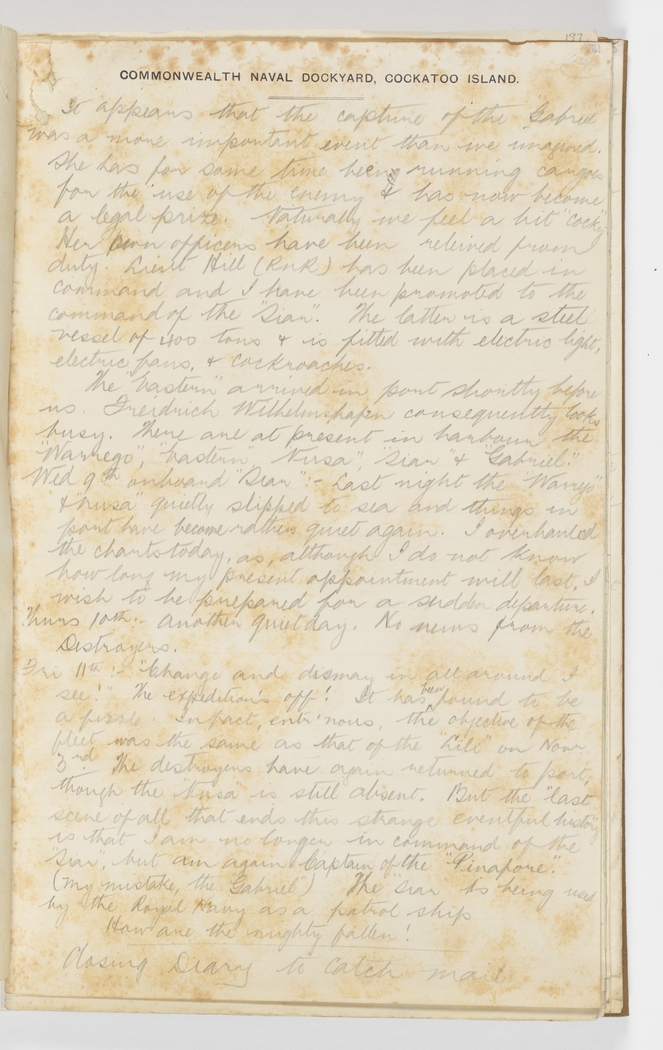 197
COMMONWEALTH NAVAL DOCKYARD, COCKATOO ISLAND.
It appears that the capture of the "Gabriel"
was a more important event than we imagined.
She has for some time being running cargoes
for the use of the enemy & has now become
a legal prize. Naturally we feel a bit "cocky"
Her own officers have been releived from
duty. Lieut Hill (RNR) has been placed in
command and I have been promoted to the
command of the "Siar". The latter is a steel
vessel of 400 tons & is fitted with electric light,
electric fans, & cockroaches.
The "Eastern" arrived in port shortly before
us. Freidrich Wilhelmshafen consequently looks
busy. There are at present in harbour the
"Warrego", "Eastern" "Nusa", "Siar" & "Gabriel".
Wed 9th onboard "Siar":- Last night the "Warrego"
& "Nusa" quietly slipped to sea and things in
port have become rather quiet again. I overhauled
the charts today, as, although I do not know
how long my present appointment will last, I
wish to be prepared for a sudden departure.
Thurs 10th:- another quiet day. No news from the
Destroyers.
Fri 11th:- "Change and dismay in all around I
see!" The expedition's off! It has been found to be
a fizzle. In fact, entr'nous, the objective of the
fleet was the same as that of the "Lili" on Novr.
3rd The destroyers have again returned to port,
though the "Nusa" is still absent. But the "last
scene of all that ends this strange eventful history"
is that I am no longer in command of the
"Siar", but am again Captain of the "Pinapore".
(My mistake, the "Gabriel") The "Siar" is being used
by the Royal Navy as a patrol ship
How are the mighty fallen!
Closing Diary to catch mail